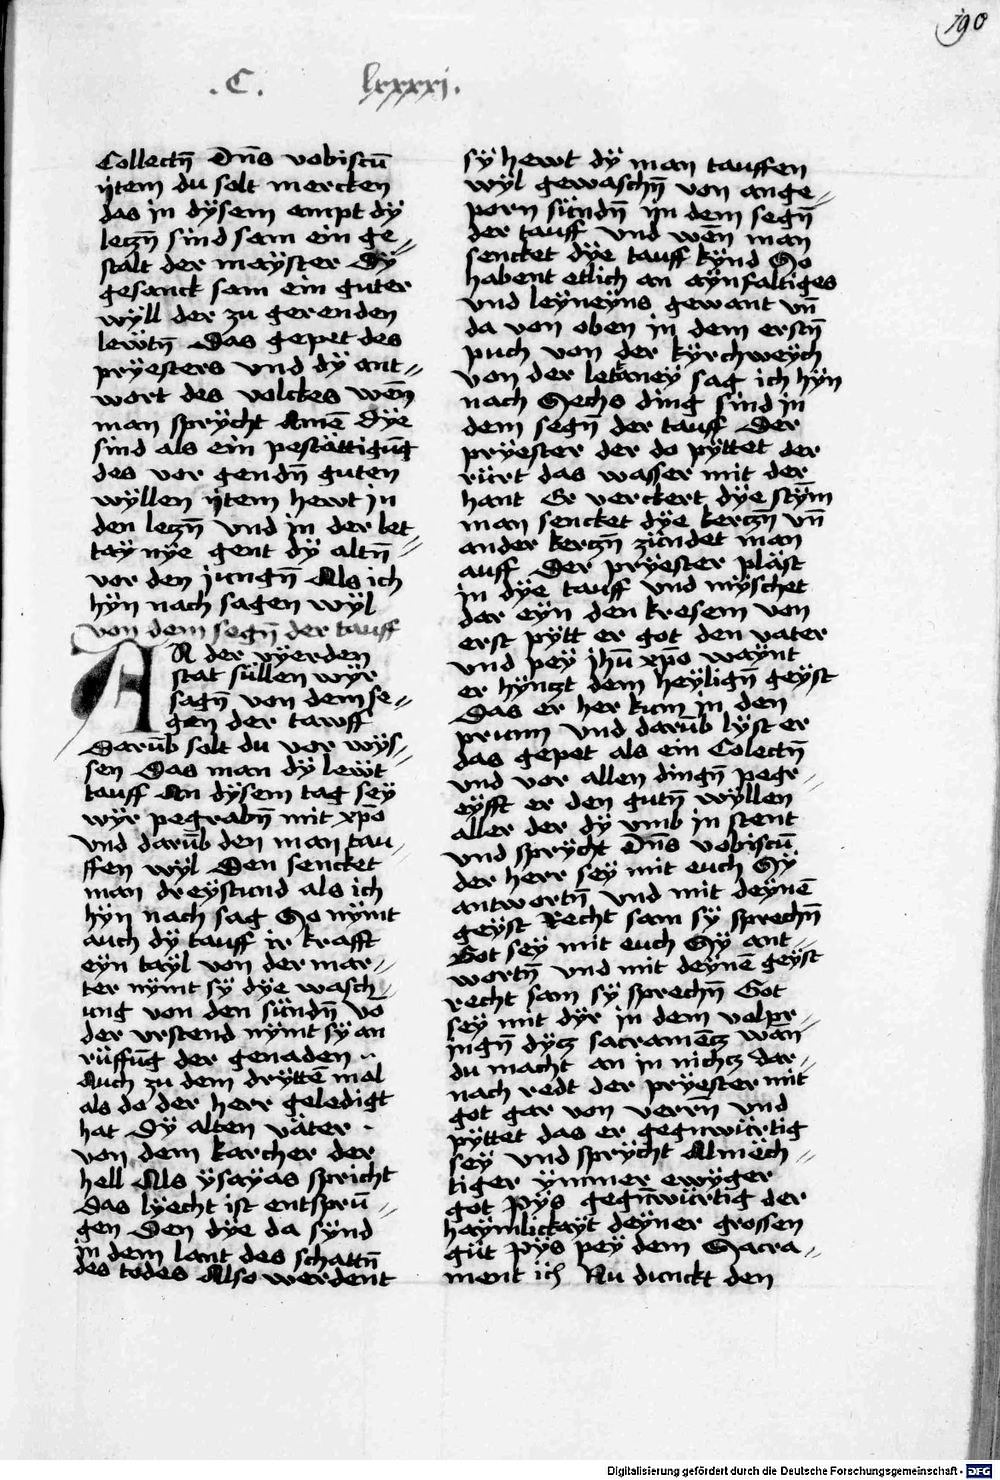 190
.C. lxxxxj.
Collectn̄ Dn̄s vobiscū
jtem du solt mercken
das in dÿsem ampt dÿ
leczn̄ sind sam ein ge⸗
stalt der maÿster Dÿ
gesanck sam ein guter
wÿll der zu gerenden
lewtn̄ Das gepet des
prÿesters vnd dÿ ant⸗
wort des volckes wēn
man sprÿcht Amē dÿe
sind als ein pestättigūg
des vor gendn̄ guten
wÿllen jtem hewt in
den leczn̄ vnd in der let⸗
taÿnÿe gent dÿ altn̄
vor den jungn̄ Als ich
hÿn nach sagen wÿl
von dem segn̄ der tauff
AN der vÿerden
stat süllen wÿr
sagn̄ von dem se⸗
gen der tawff
Darūb solt du vor wÿs⸗
sen Das man dÿ lewt
tauff An dÿsem tag seÿ
wÿr pegrabn̄ mit xp̄o
vnd darūb den man tau⸗
ffen wÿl Den sencket
man dreÿstund als ich
hÿn nach sag So nÿmt
auch dÿ tauff ir krafft
eÿn taÿl von der mar⸗
ter nÿmt sÿ dÿe wasch⸗
ung von den sündn̄ vō
der vrstend nÿmt sÿ an
rüffūg der genaden
Auch zu dem drÿttē mal
als do der herr geledigt
hat dÿ alten väter
von dem karcher der
hell Als ÿsaÿas spricht
das lÿecht ist entsprū⸗
gen Den dÿe da sÿnd
in dem lant des schattn̄
des todes Also werdent
sÿ hewt dÿ man tauffen
wÿl gewaschn̄ von ange⸗
porn sündn̄ jn dem segn̄
der tauff vnd wēn man
sencket dÿe tauff kÿnd So
habent etlich an aÿnfaltiges
vnd leÿneÿns gewant vn̄
da von oben in dem erstn̄
puch von der kÿrchweÿch
von der letaneÿ sag ich hÿn
nach Sechs ding sind in
dem segn̄ der tauff Der
prÿester der do pÿttet der
rürt das wasser mit der
hant Er verckert dÿe stÿm
man sencket dÿe kerczn̄ vn̄
ander kerczn̄ zündet man
auff Der prÿester pläst
in dÿe tauff vnd mÿschet
dar eÿn den kresem von
erst pÿtt er got den vater
vnd peÿ jhū xp̄o waÿnt
er hÿnczt dem heÿlign̄ geÿst
Das er her kum in den
prunn vnd darūb lÿst er
das gepet als ein Colectn̄
vnd vor allen dingn̄ pegr⸗
eÿfft er den gutn̄ wÿllen
aller der dÿ vmb in stent
vnd sprÿcht Dn̄s vobiscū
der herr seÿ mit euch Sÿ
antwortn̄ vnd mit deÿnē
geÿst Recht sam sÿ sprechn̄
Got seÿ mit euch Sÿ ant⸗
wortn̄ vnd mit deÿnē geÿst
recht sam sÿ sprechn̄ Got
seÿ mit dÿr in dem volpr⸗
ingn̄ dÿcz sacramēcz wān
du macht an in nichcz dar⸗
nach redt der prÿester mit
got gar von verrn̄ vnd
pÿttet das er gegnwürtig
seÿ vnd sprÿcht Almëch⸗
tiger ÿmmer ewÿger
got Pÿs gegn̄würtig der
haÿmlickaÿt deÿner grossen
güt Pÿs peÿ dem Sacra⸗
ment ich Nu dunckt den
Digitalisierung gefördert durch die Deutsche Forschungsgemeinschaft - DFG